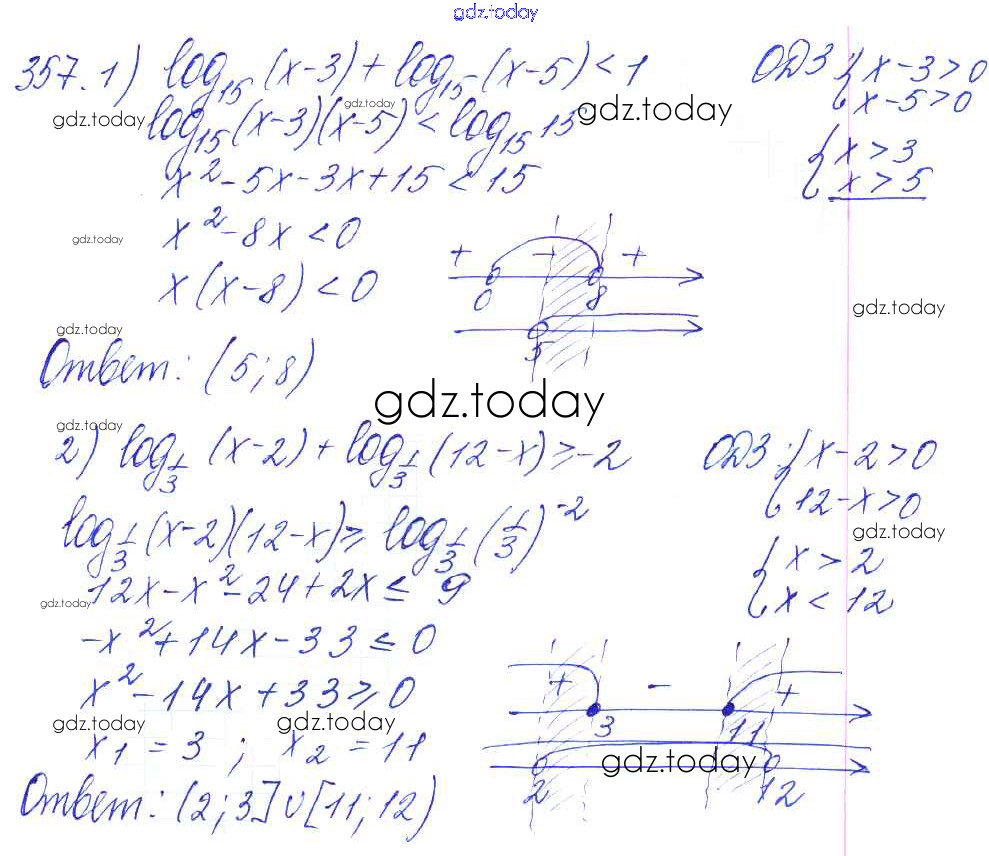 gdz.today
357. 1) log₁₅ (x-3) + log₁₅ (x-5) < 1
ОДЗ { x-3>0
x-5>0
gdz.today gdz.today gdz.today
log₁₅ (x-3)(x-5) < log₁₅ 15
{ x>3
x>5
x²-5x-3x+15 < 15
gdz.today
x²-8x<0
x(x-8)<0
+ - +
0 8
5
gdz.today
gdz.today
Ответ: (5;8)
gdz.today
gdz.today
2) log_1/3 (x-2) + log_1/3 (12-x) ≥ -2
ОДЗ: { x-2>0
12-x>0
log_1/3 (x-2)(12-x) ≥ log_1/3 (1/3)^-2
gdz.today
{ x>2
x<12
gdz.today
12x-x²-24+2x ≤ 9
-x²+14x-33 ≤ 0
x²-14x+33 ≥ 0
+ - +
3 11
2 12
gdz.today gdz.today
x₁ = 3 ; x₂ = 11
gdz.today
Ответ: (2;3]∪[11;12)